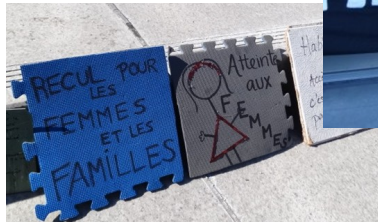 RECUL POUR
LES
FEMMES
ET LES
FAMILLES
Atteinte
aux
FEMMES